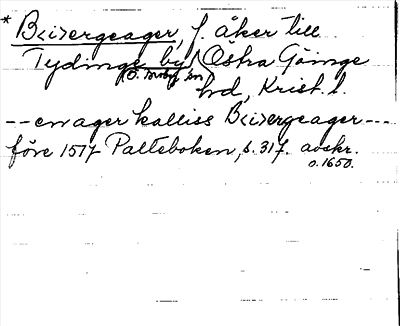 * B<i>ergeager, f. åker till
Tydinge by, Östra Göinge
O. Broby sn
hd, Krist. l.
-- en ager kalliss B<i>ergeager ---
före 1517 Palteboken, s. 317. avskr.
o. 1650.